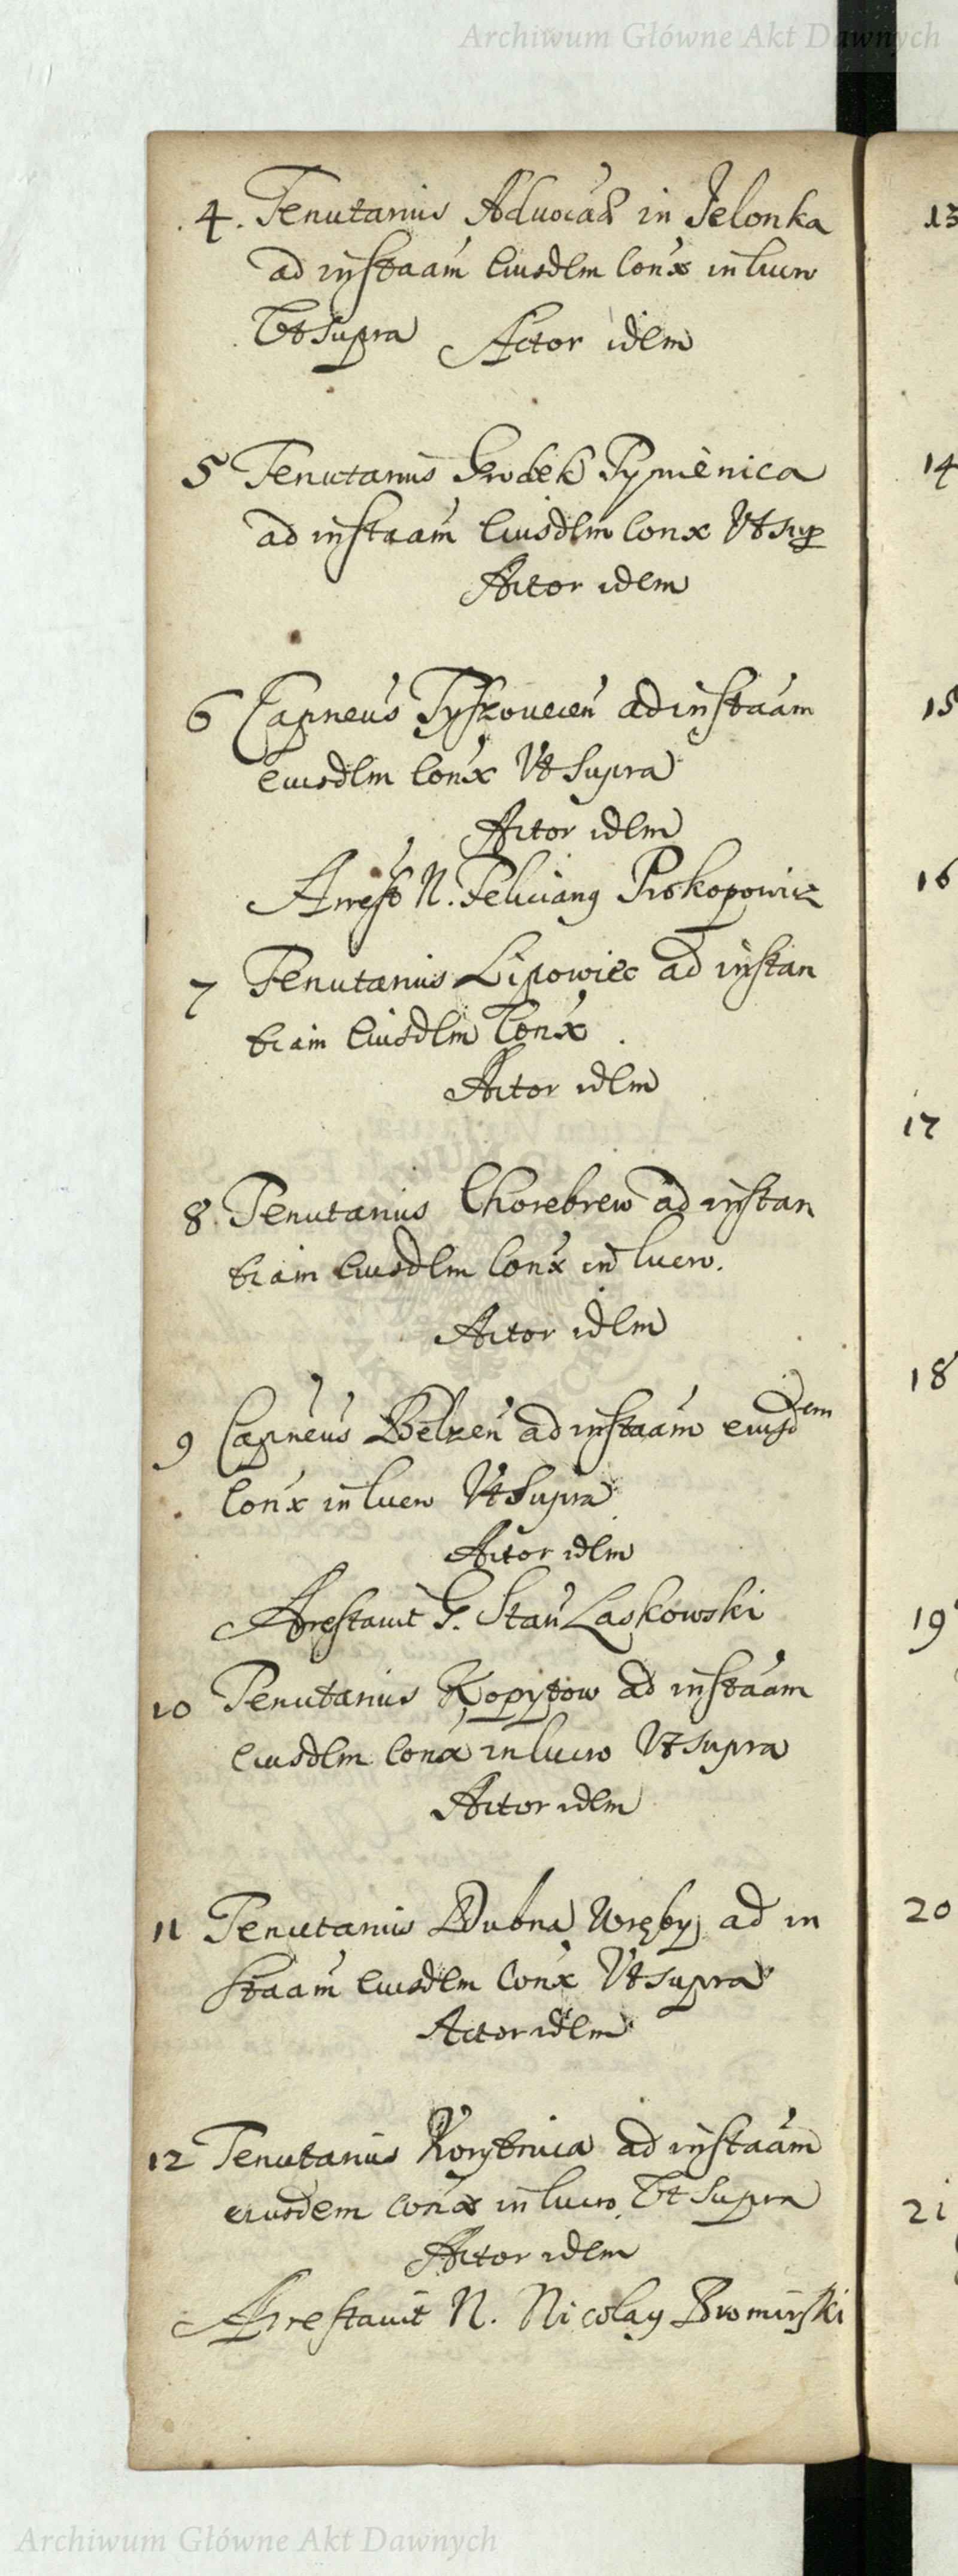 Archiwum Główne Akt Dawnych
4. Tenutarius Aduocaĕ in Jelonka
ad instaam Eiusdem Conx in lucro
Vt supra Actor idem
5 Tenutarius Grodek Tyṁenica
ad instaam Eiusdem Conx Vt sup
Actor idem
6 Capneus Tyszouecen ad instaam
eiusdem Conx Vt Supra
Actor idem
Arrest N. Felicianq Prokopowicz
7 Tenutarius Lipowiec ad instan
tiam Eiusdem Conx
Actor idem
8 Tenutarius Chorebrew ad instan
tiam Eiusdem Conx in lucro.
Actor idem
9 Capneus Belzen ad instaam eiusdem
Conx in lucro Vt Supra
Actor idem
Arestauit G. Stan Laskowski
10 Tenutarius Kopytow ad instaam
Eiusdem Conx in lucro Vt supra
Actor idem
11 Tenutarius Dubna Wręby ad in
staam Eiusdem Conx Vt supra
Actor idem
12 Tenutarius Korytnica ad instaam
eiusdem Conx in lucro Vt Supra
Actor idem
Arestauit N. Nicolaq Bromirski
13
14
15
16
17
18
19
20
21
Archiwum Główne Akt Dawnych